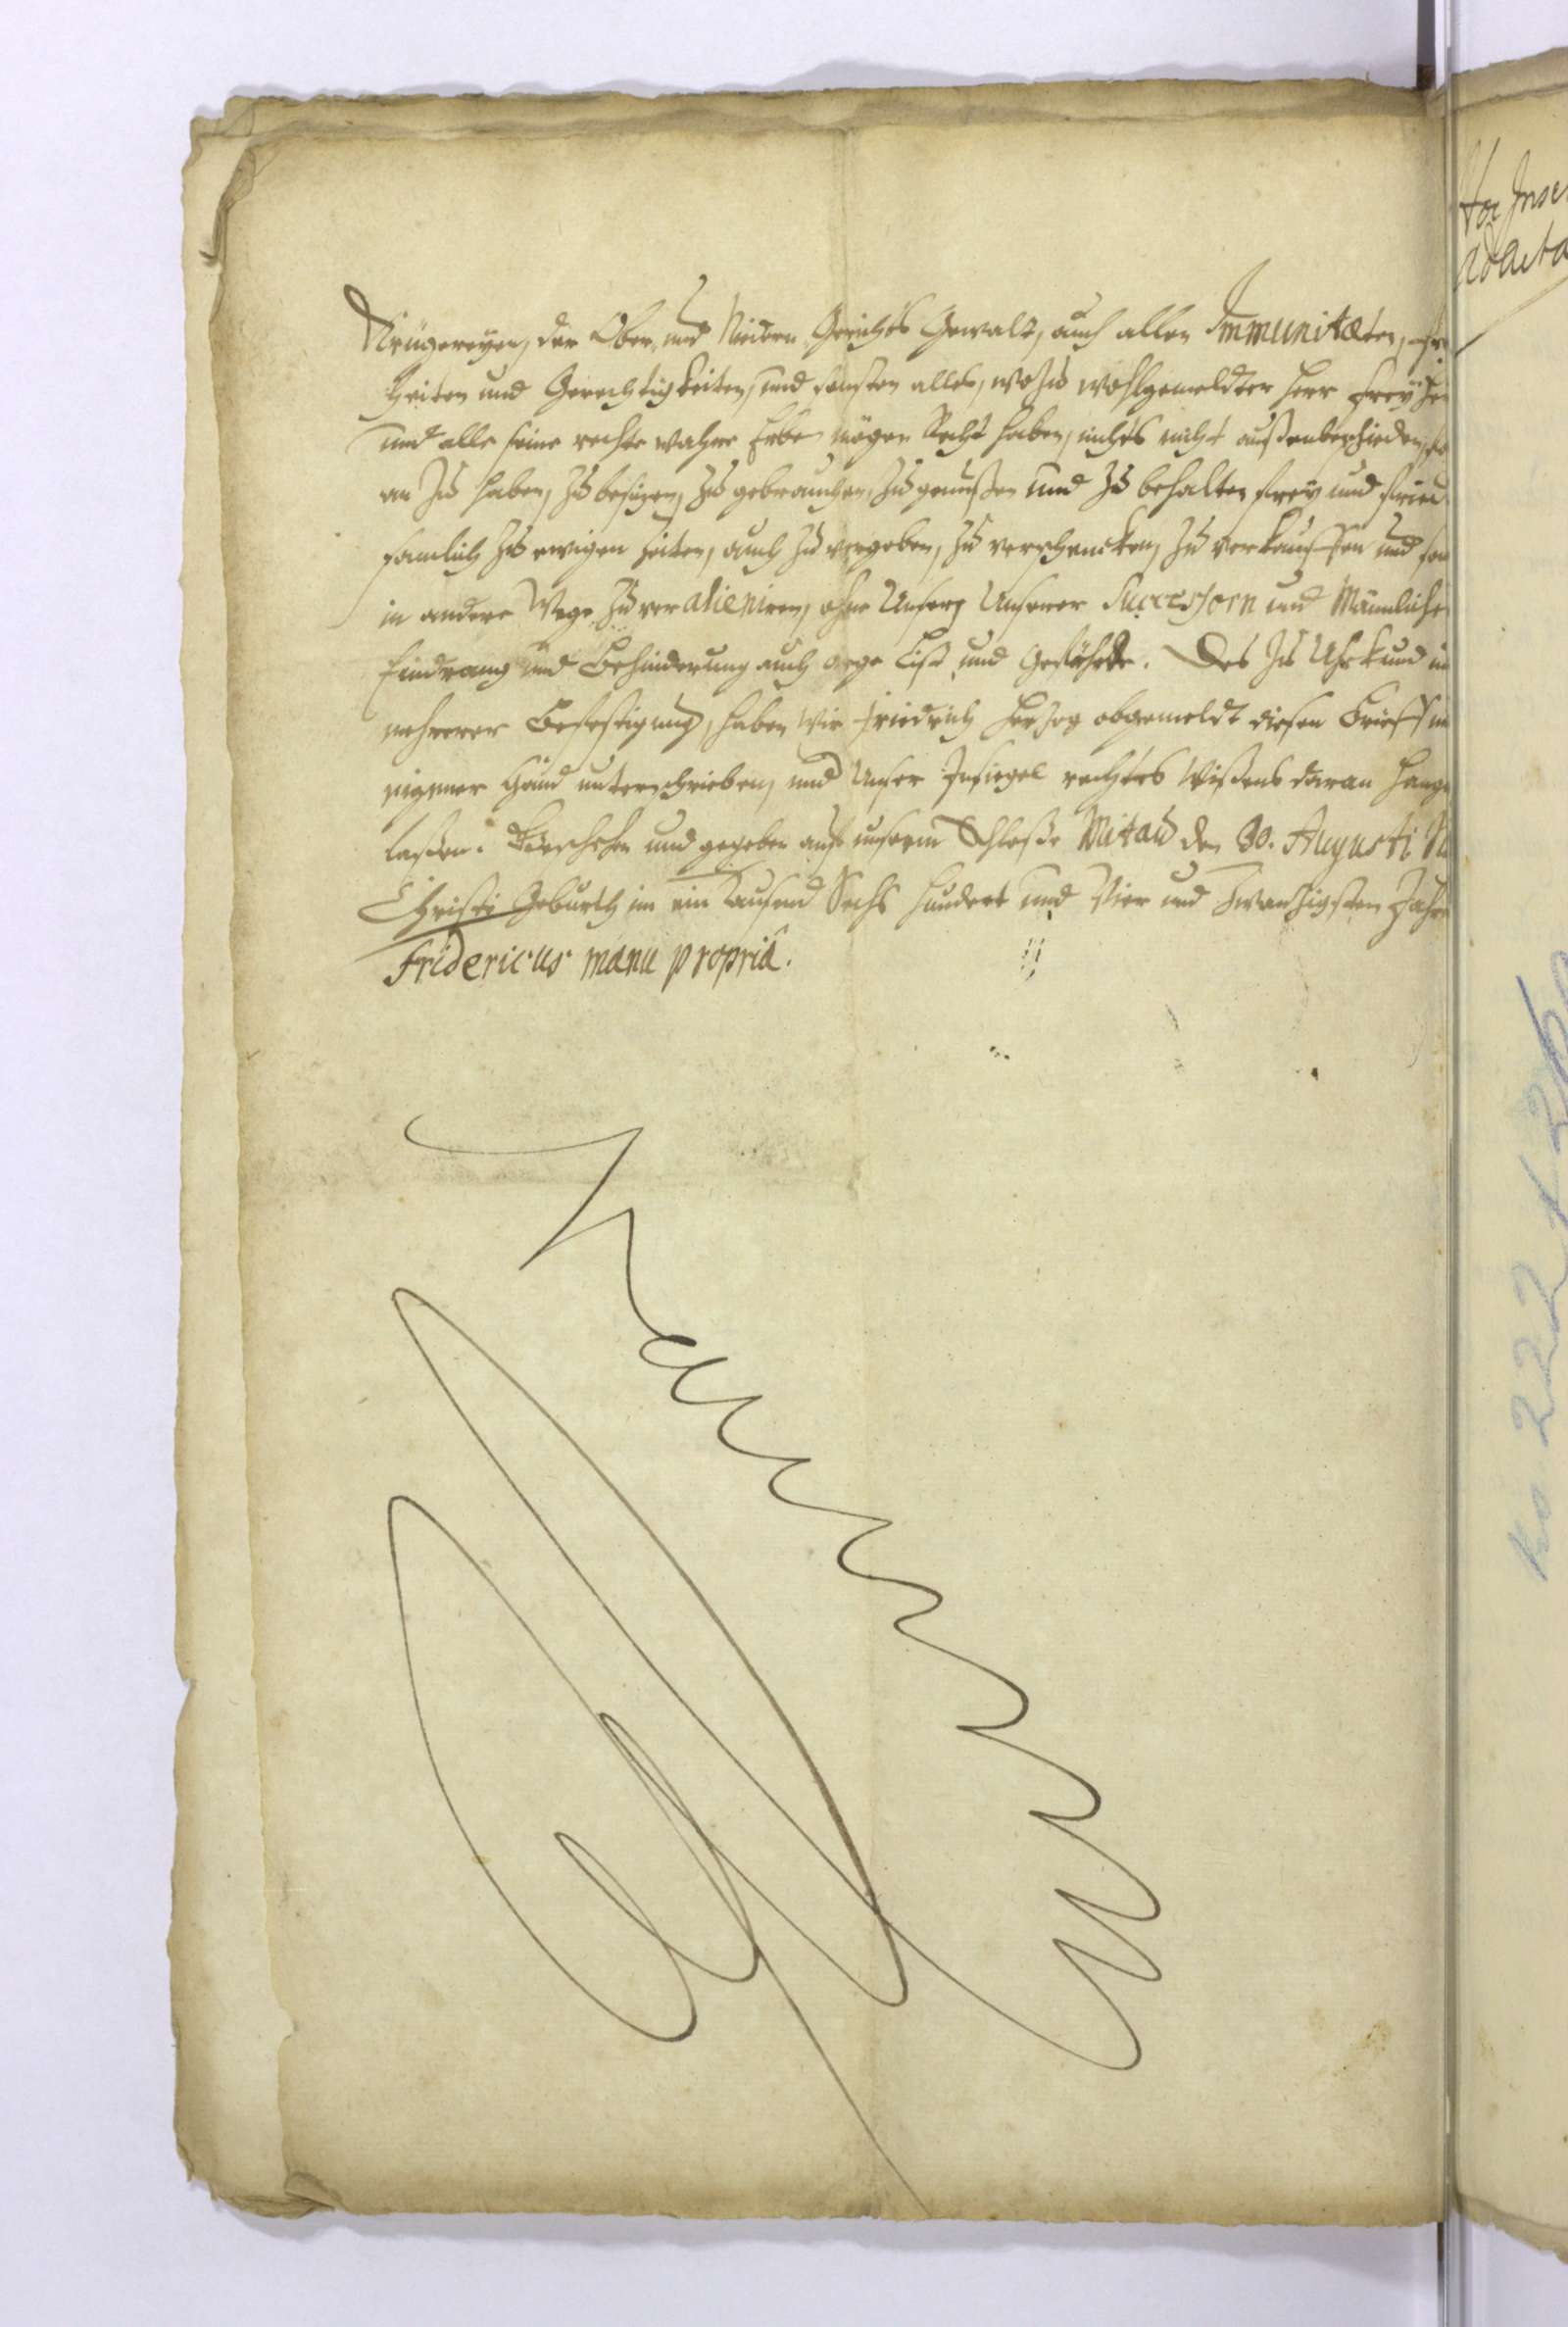 Krügereyen, der Ober und Nieder Gerichts Gewalt, auch allen Immunitæten, Frey
heiten und Gerechtigkeiten, und sonsten alles, wozu wohlgemeldter Herr Frey Her
und alle seine rechte wahre Erben mögen Recht haben, nichts nicht außenbeschieden,
an zu haben, zu besizen, zu gebrauchen, zu genießen und zu behalten frey und fried
samlich zu ewigen Zeiten, auch zu vergeben, zu verschencken, zu verkauffen und son
in andere Wege zu veralieniren, ohne Unserz Unserer Successorn und Männliche
Eindrang und Behinderung auch arge List und Gefährde. Des zu Uhrkund un
mehrerer Befestigung, haben Wir Friedrich Herzog obgemeldt diesen Brieff mi
eigener Hand unterschrieben, und Unser Insiegel rechtes Wißens daran hange
laßen. Geschehen und gegeben auf unserm Schloße Mitau den 30. Augusti Na
Christi Geburth im ein Tausend Sechs Hundert und Vier und Zwanzigsten Jahre
Fridericus manu propriâ.
Hoc
ad acta
No 222